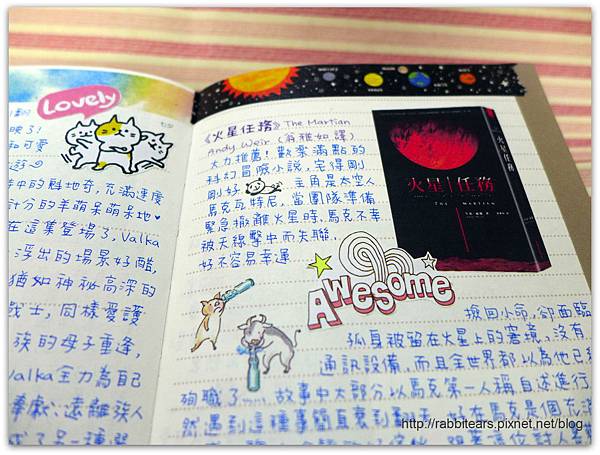 Lovely
映了!
和可愛
中的魅地奇,充滿速度
計分的羊萌呆萌呆地♥
在這集登場了,Valka
浮出的場景好酷,
猶如神祕高深的
戰士,同樣愛護
族的母子重逢,
Valka全力為自己
奉獻、遠離族人
《火星任務》The Martian
Andy Weir (翁雅如 譯)
大力推薦!歡樂滿點的
科幻冒險小說,宅得剛
剛好 主角是太空人
馬克瓦特尼,當團隊準備
緊急撤離火星時,馬克不幸
被天線擊中而失聯.
好不容易幸運
火星任務
THE MARTIAN
火星任務
Awesome
撿回小命,卻面臨
孤身被留在火星上的窘境、沒有
通訊設備、而且全世界都以為他已經
殉職了, 故事中大部分以馬克第一人稱自述進行
然遇到這種事簡直衰到
好在馬克是個充滿
http://rabbitears.pixnet.net/blog